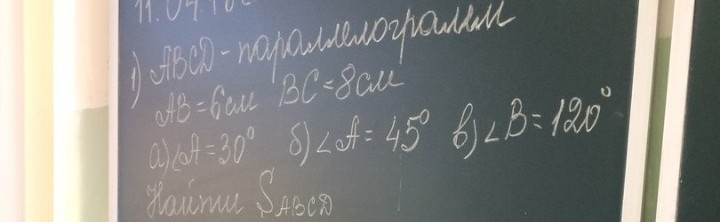 11.04.
1) ABCD - параллелограмм
AB = 6 см BC = 8 см
а) ∠A = 30° б) ∠A = 45° в) ∠B = 120°
Найти S ABCD